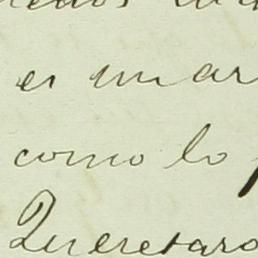 es un ar
como lo
Queretaro